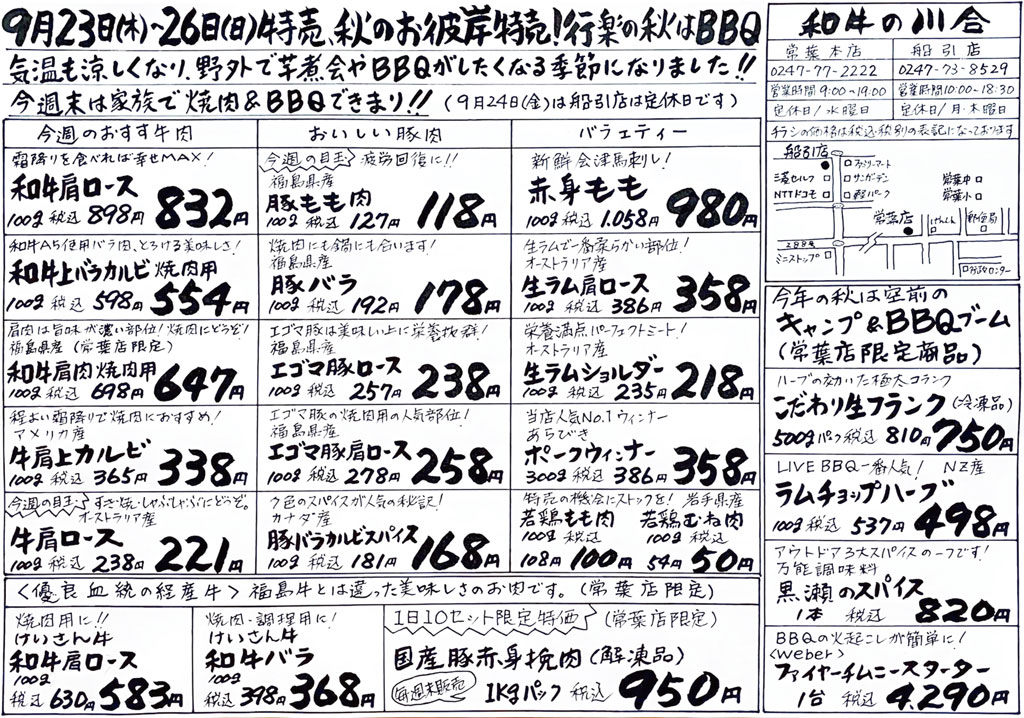 9月23日(木)~26日(日)特売、秋のお彼岸特売!行楽の秋はBBQ
気温も涼しくなり、野外で芋煮会やBBQがしたくなる季節になりました!!
今週末は家族で焼肉&BBQできまり!!(9月24日(金)は船引店は定休日です)
今週のおすすめ牛肉
霜降りを食べれば幸せMAX!
和牛肩ロース
100g 税込 898円 832円
和牛A5使用バラ肉、とろける美味しさ!
和牛上バラカルビ 焼肉用
100g 税込 598円 554円
肩肉は旨味が濃い部位!焼肉にどうぞ!
福島県産(常葉店限定)
和牛肩肉焼肉用
100g 税込 698円 647円
程よい霜降りで焼肉におすすめ!
アメリカ産
牛肩上カルビ
100g 税込 365円 338円
今週の目玉 すき焼・しゃぶしゃぶにどうぞ。
オーストラリア産
牛肩ロース
100g 税込 238円 221円
おいしい豚肉
今週の目玉 疲労回復に!!
福島県産
豚もも肉
100g 税込 127円 118円
焼肉にも鍋にも合います!
福島県産
豚バラ
100g 税込 192円 178円
エゴマ豚は美味しい上に栄養抜群!
福島県産
エゴマ豚ロース
100g 税込 257円 238円
エゴマ豚の焼肉用の人気部位!
福島県産
エゴマ豚肩ロース
100g 税込 278円 258円
7色のスパイスが人気の秘訣!
カナダ産
豚バラカルビスパイス
100g 税込 181円 168円
バラェティー
新鮮会津馬刺し!
赤身もも
100g 税込 1.058円 980円
生ラムで一番柔らかい部位!
オーストラリア産
生ラム肩ロース
100g 税込 386円 358円
栄養満点パーフェクトミート!
オーストラリア産
生ラムショルダー
100g 税込 235円 218円
当店人気No.1ウィンナー
あらびき
ポークウィンナー
300g 税込 386円 358円
特売の機会にストックを! 岩手県産
若鶏もも肉 若鶏むね肉
100g 税込 100g 税込
108円 100円 54円 50円
<優良血統の経産牛>福島牛とは違った美味しさのお肉です。(常葉店限定)
焼肉用に!!
けいさん牛
和牛肩ロース
100g
税込 630円 583円
焼肉・調理用に!
けいさん牛
和牛バラ
100g
税込 398円 368円
1日10セット限定特価 (常葉店限定)
国産豚赤身挽肉(解凍品)
毎週末販売 1Kgパック 税込 950円
和牛の川合
常葉本店 船引店
0247-77-2222 0247-73-8529
営業時間9:00~19:00 営業時間10:00~18:30
定休日/水曜日 定休日/月・木曜日
チラシの価格は税込・税別の表記になっております
船引店
ファミリーマート
三春セルフ サンガーデン
NTTドコモ 軽パーク
常葉中
常葉小
常葉店
げんくん
郵便局
288号
ミニストップ
行政センター
今年の秋は空前の
キャンプ&BBQブーム
(常葉店限定商品)
ハーブの効いた極太フランク
こだわり生フランク(冷凍品)
500gパック 税込 810円 750円
LIVE BBQ一番人気! NZ産
ラムチョップハーブ
100g 税込 537円 498円
アウトドア3大スパイスの一つです!
万能調味料
黒瀬のスパイス
1本 税込 820円
BBQの火起こしが簡単に!
<Weber>
ファイヤーチムニースターター
1台 税込 4.290円